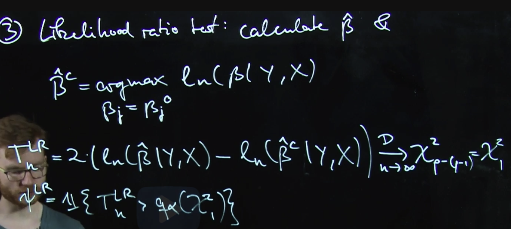 ③ Likelihood ratio test: calculate β̂ &
β̂ᶜ = argmax ln(β|Y,X)
βⱼ = βⱼ⁰
Tₙᴸᴿ = 2·(ln(β̂|Y,X) − ln(β̂ᶜ|Y,X)) →ᴰ n→∞ χ²ₚ₋₍ₚ₋₁₎ = χ²₁
ψᴸᴿ = 𝟙{Tₙᴸᴿ > qα(χ²₁)}